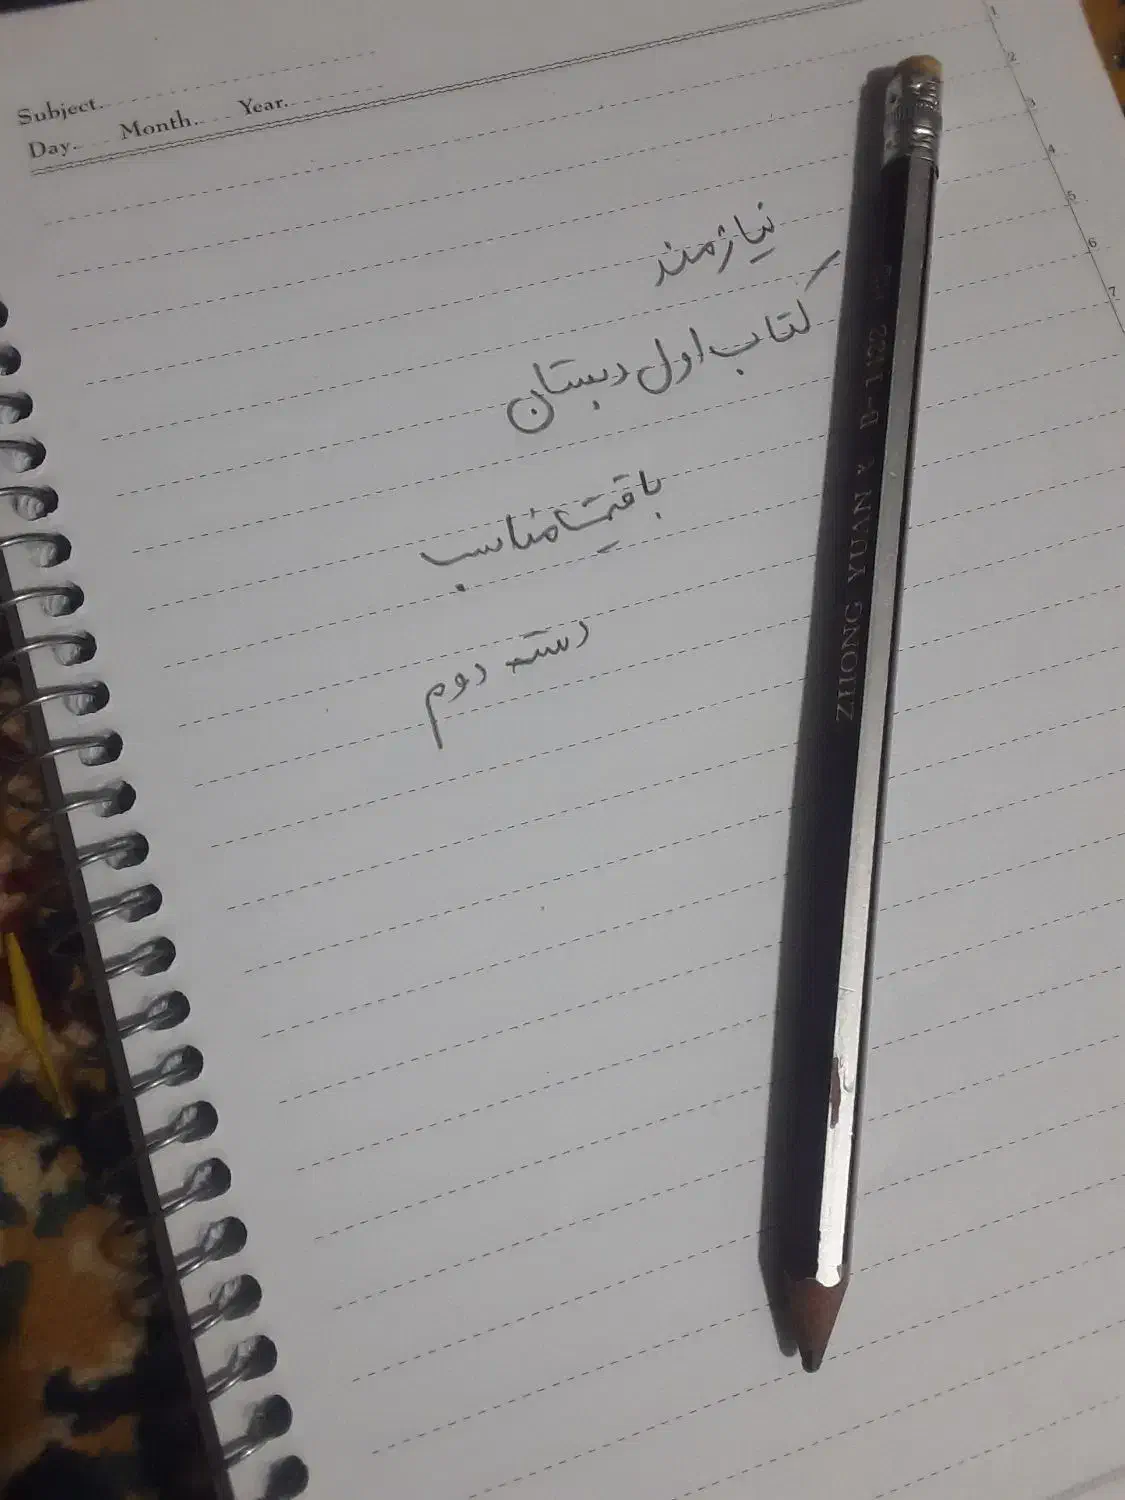 Subject.
Day. Month. Year.
1
2
3
4
5
6
7
نیازمند
کتاب اول دبستان
با قیمت مناسب
دسته دوم
ZHONG YUAN * D-1122